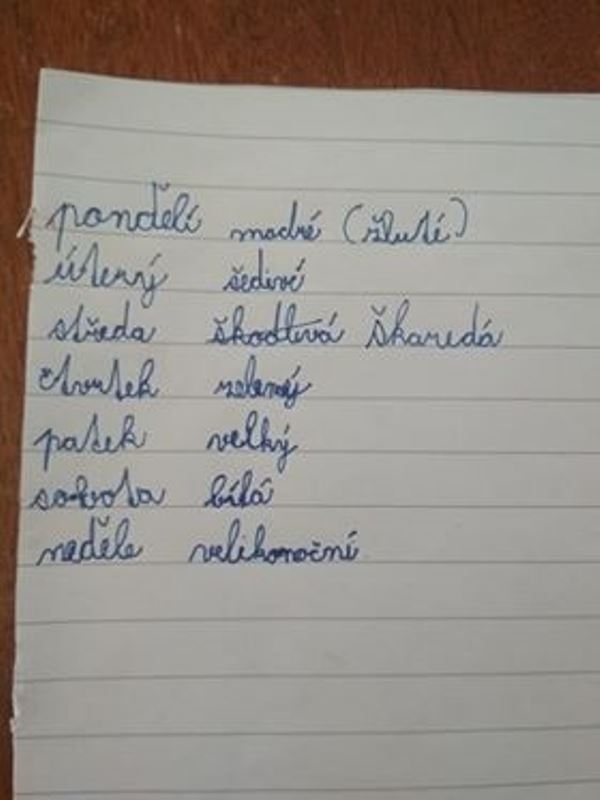 pondělí modré (žluté)
úterný šedivé
středa škodlivá Škaredá
čtvrtek zelený
patek velký
sobota bílá
neděle velikonoční